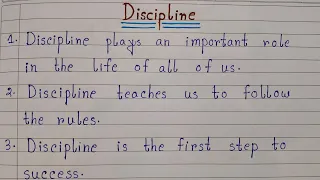 Discipline
1. Discipline plays an important role
in the life of all of us.
2. Discipline teaches us to follow
the rules.
3. Discipline is the first step to
success.